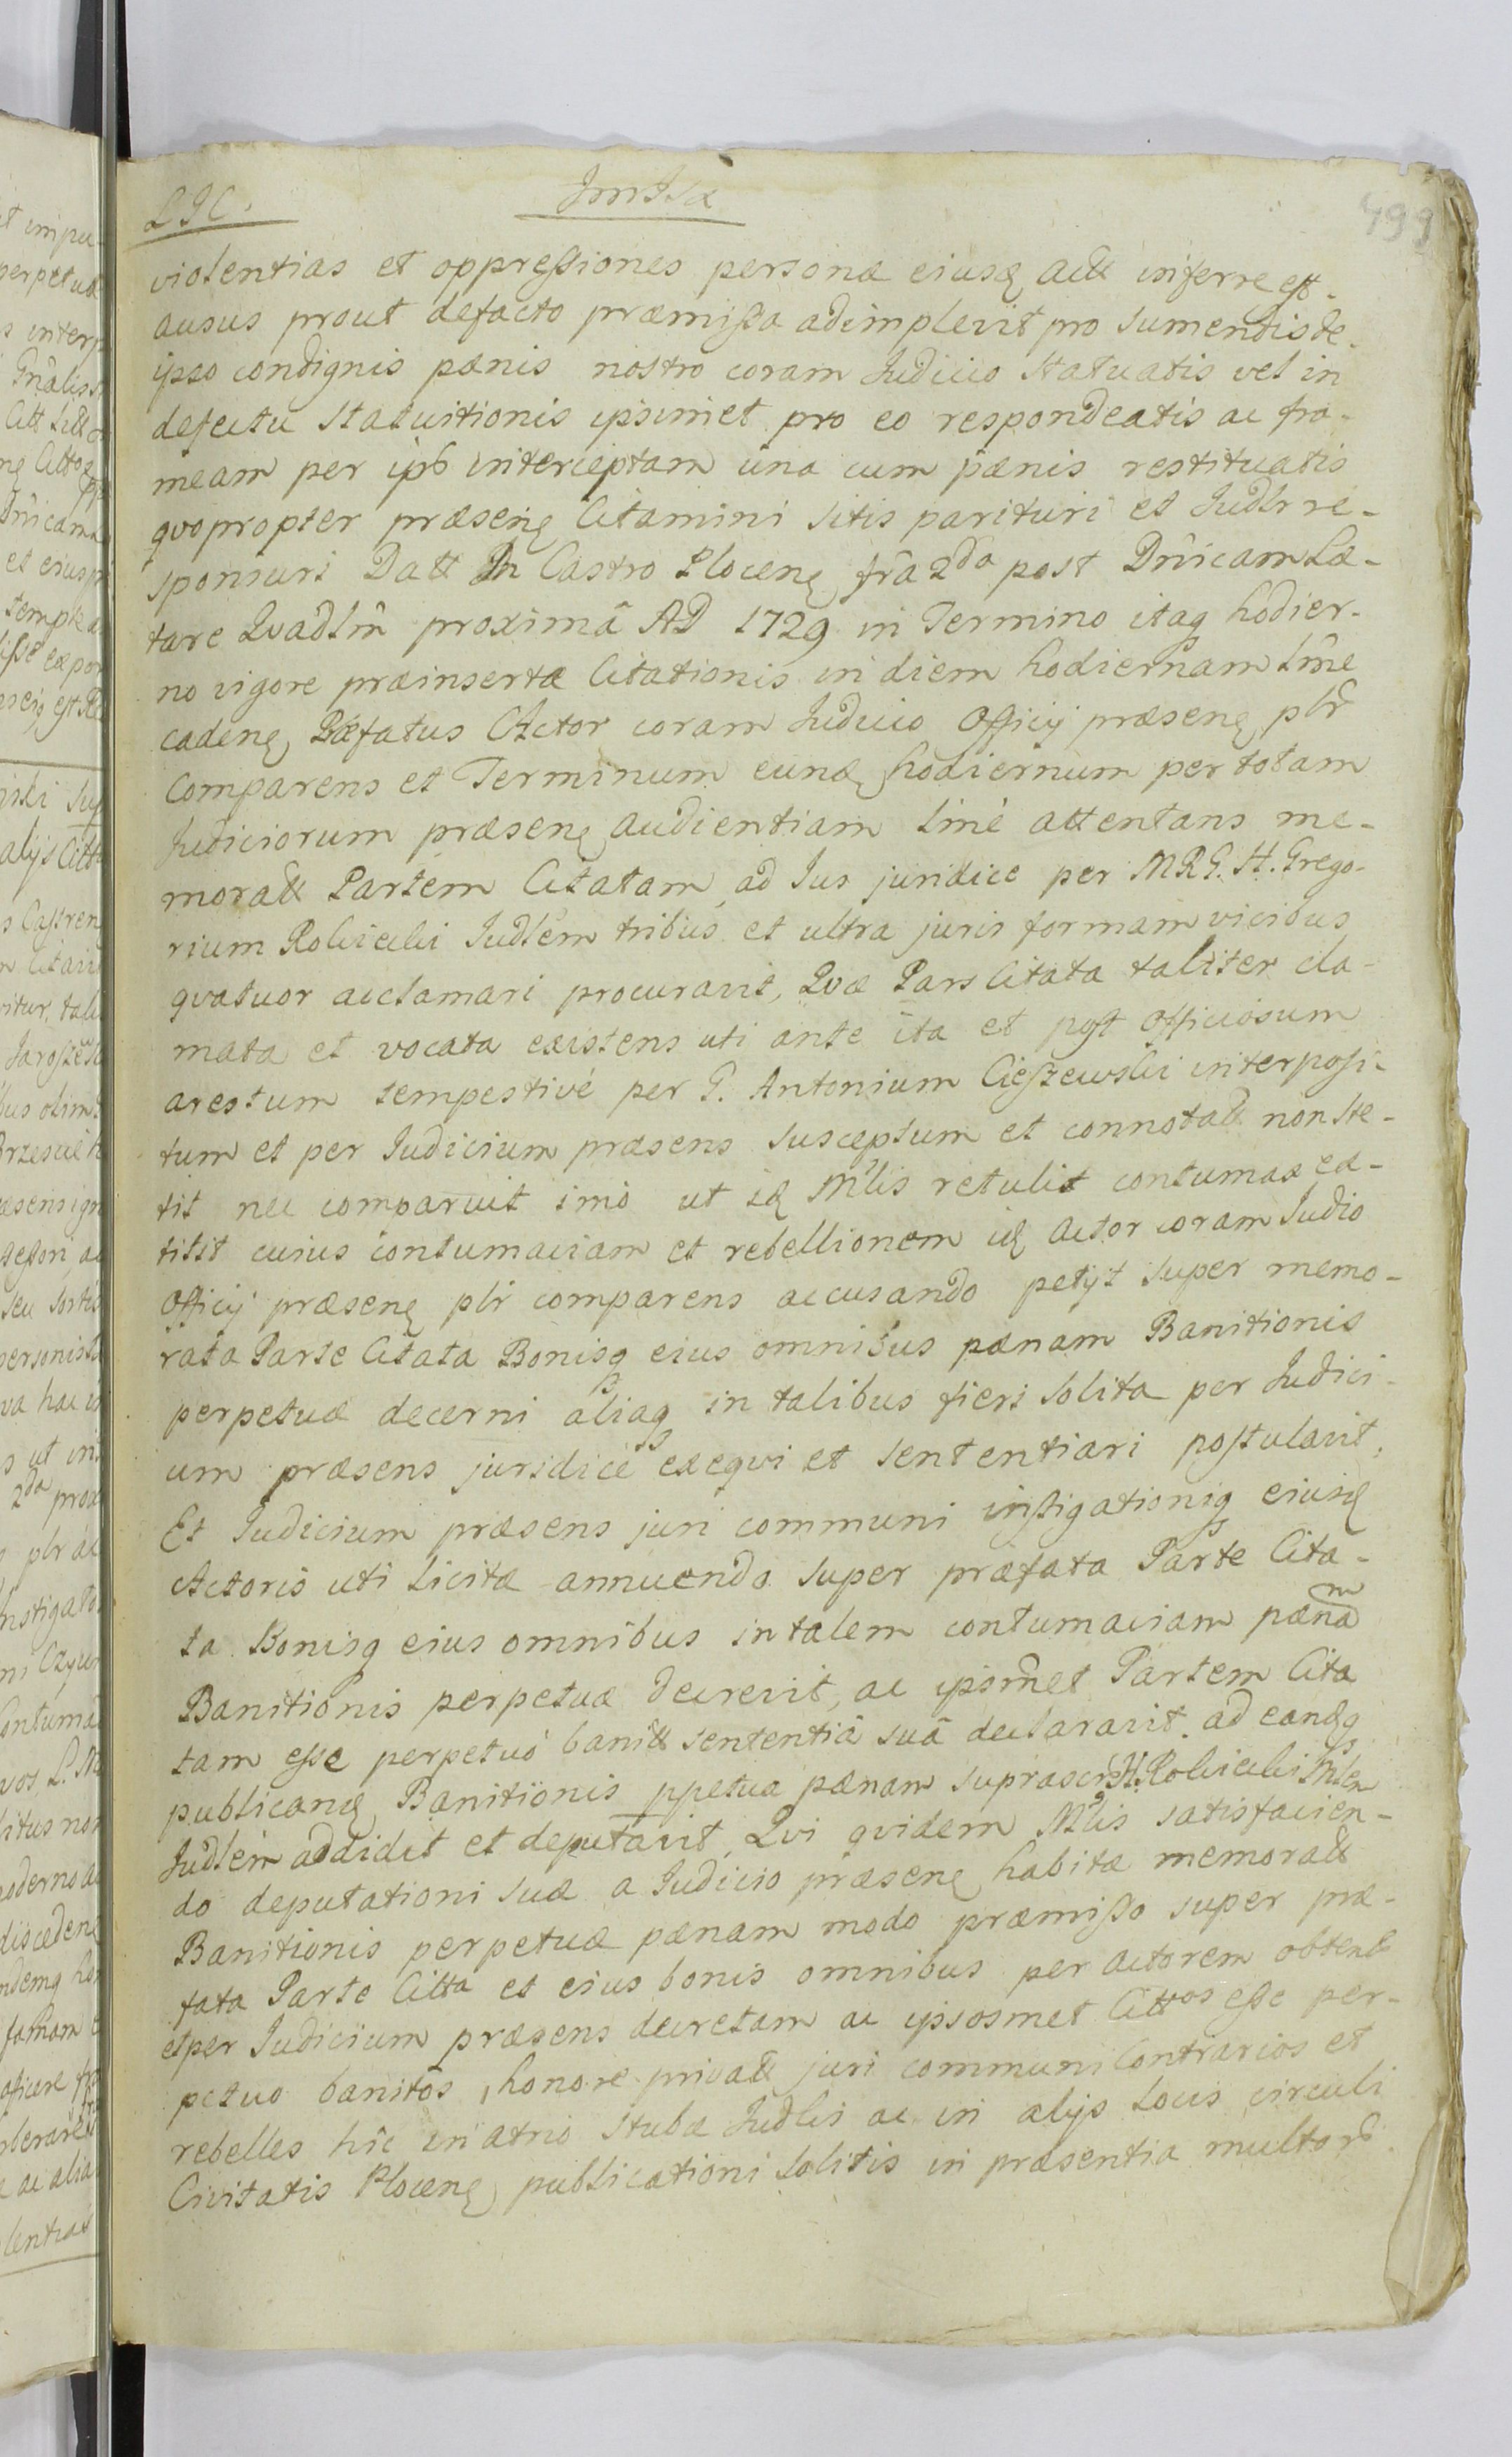 499
violentias et oppressiones personæ eiusd Actt inferre est
ausus prout defacto præmissa adimplevit pro sumendis de
ipso condignis pœnis nostro coram Judicio statuatis vel in
defectu statuitionis ipsimet pro eo respondeatis ac fra-
meam per ipsb interceptam una cum pœnis restituatis
qvopropter præsenȩ Citamini sitis parituri et Judlr re-
sponsuri Datt In Castro Plocenȩ frã 2da post Dnicam Læ-
tare Qvadlm̃ proximâ AD 1729 in Termino itaq hodier-
no vigore præinsertæ Citationis in diem hodiernam Lm̃e
cadenȩ Præfatus Actor coram Judicio Officij præsenȩ plr
Comparens et Terminum eund hodiernum per totam
Judiciorum præsenȩ audientiam Lmè attentans me-
moratt Partem Citatam, ad Jus juridice per MRG. H. Grego-
rium Rokicki Judlem tribus et ultra juris formam vicibus
qvatuor acclamari procuravit, Qvæ Pars Citata taliter cla-
mata et vocata existens uti ante ita et post officiosum
arestum tempestivè per G. Antonium Cieszewski interposi-
tum et per Judicium præsens susceptum et connotatt non ste-
tit nec comparuit imò ut id Mlis retulit contumax ex-
titit cuius contumaciam et rebellionem id Actor coram Judio
Officij præsenȩ plr comparens accusando petijt super memo-
rata Parte Citata Bonisq eius omnibus pœnam Banitionis
perpetuæ decerni aliaq in talibus fieri solita per Judici-
um præsens juridicè exeqvi et sententiari postulavit,
Et Judicium præsens juri communi instigationiq eiusd
Actoris uti licitæ annuendo super præfata Parte Cita-
ta Bonisq eius omnibus in talem contumaciam pœnam
Banitionis perpetuæ decrevit, ac ipsm̃et Partem Cita
tam esse perpetuò banitt sententiâ suâ declaravit. ad eandq
publicand Banitionis ppetuæ pœnam suprascr H. Rokicki Mlem
Judlem addidit et deputavit, Qvi qvidem Mlis satisfacien-
do deputationi suæ a Judicio præsenȩ habitæ memoratt
Banitionis perpetuæ pœnam modo præmisso super præ-
fata Parte Citta et eius bonis omnibus per Actorem obtent
et per Judicium præsens decretam ac ipsosmet Cittos esse per-
petuo banitos, honore privatt juri communi Contrarios et
rebelles hîc in atrio stubæ Judlis ac in alijs locis circuli
Civitatis Plocenȩ publicationi solitis in præsentia multor